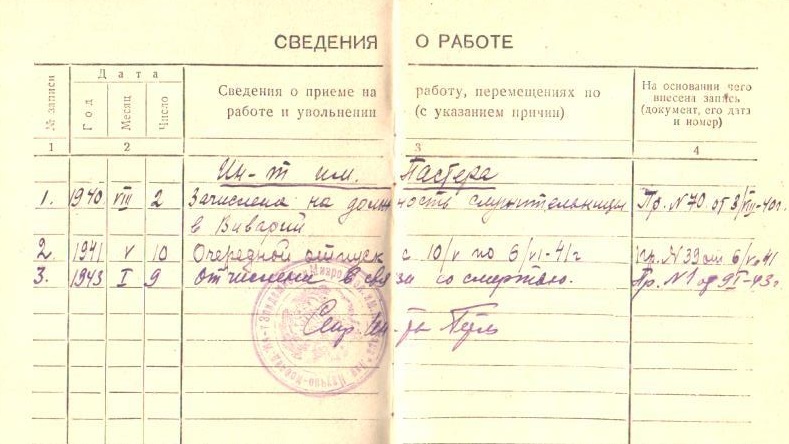 СВЕДЕНИЯ О РАБОТЕ
№ записи
Дата
Год
Месяц
Число
Сведения о приеме на работу, перемещениях по
работе и увольнении (с указанием причин)
На основании чего
внесена запись
(документ, его дата
и номер)
1 2 3 4
Ин-т им. Пастера
1. 1940 VIII 2 Зачислена на должность служительницы Пр. N 70 от 3/VIII-40 г.
в Виварий
2. 1941 V 10 Очередной отпуск с 10/V по 6/VI-41 г Пр. N 39 от 6/V-41
3. 1943 I 9 Отчислена в связи со смертью. Пр. N 1 от 9 I-43 г
Секр. Ин-та